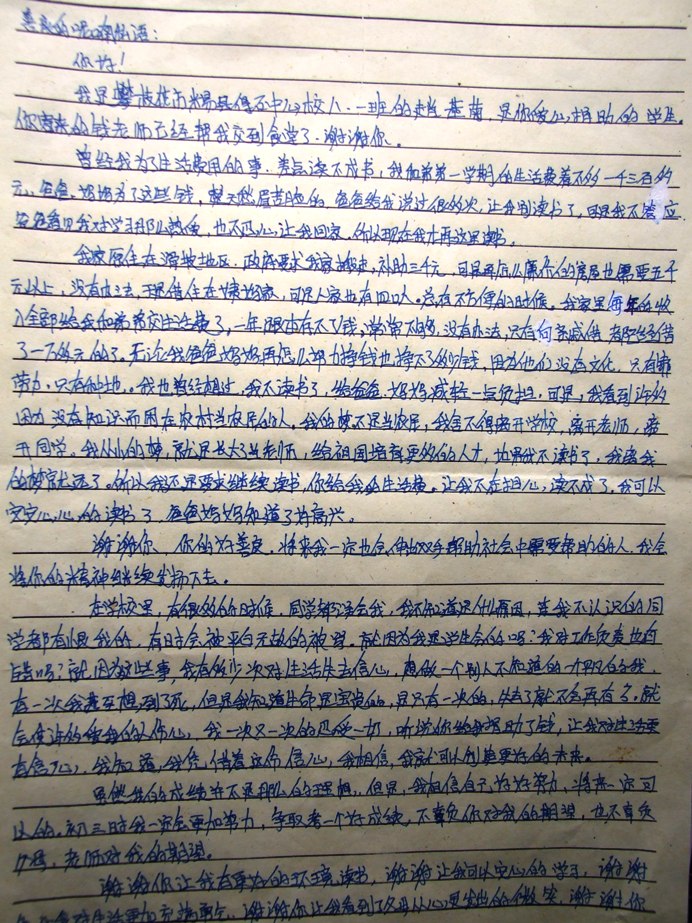 善良的呢喃细语：
你好！
我是攀枝花市米易县得石中心校八.一班的 基 ，是你爱心捐助的学生。
你寄来的钱老师已经帮我交到食堂了.谢谢你。
曾经我为了生活费用的事，差点读不成书，我和弟弟一学期的生活费差不多一千三百多
元，爸爸、妈妈为了这些钱，整天愁眉苦脸的，爸爸给我说过很多次，让我别读书了，可是我不答应
爸爸看见我对学习那么热爱，也不忍心，让我回家，所以现在我才再这里读书。
我家原住在滑坡地区，政府要求我家搬走，补助三千元，可是再怎么廉价的房屋也需要五千
元以上，没有办法，现借住在 家，可是人家也有四口人。总有不方便的时候，我家里每年的收
入全部给我和弟弟交生活费了，一年根本有不了钱，常常不够，没有办法，只有向亲戚借，都已经借
了一万多元的了。无论我爸爸妈妈再怎么努力挣钱也挣不了多少钱，因为他们没有文化，只有靠
劳力，只有种地。我也曾经想过，我不读书了，给爸爸、妈妈减轻一点负担，可是，我看到许多
因为没有知识而困在农村当农民的人，我的梦不是当农民，我舍不得离开学校，离开老师，离
开同学。我从小的梦，就是长大了当老师，给祖国培育更多的人才，如果我不读书了，我离我
的梦就远了。所以我还是要求继续读书，你给我的生活费。让我不在担心，读不成了，我可以
安安心心的读书了，爸爸妈妈知道了好高兴。
谢谢你、你的好善良，将来我一定也会伸出双手帮助社会中需要帮助的人，我会
将你的精神继续发扬下去。
在学校里，有很多的时候，同学都误会我，我不知道是什么原因，连我不认识的同
学都有恨我的，有时会被平白无故的被骂，就因为我是学生会的吗？我对工作负责也有
错吗？就因为这些事，我有多少次对生活失去信心，想做一个别人不知道的一个平凡的我，
有一次我甚至想到了死，但是我知道生命是宝贵的，是只有一次的，失去了就不会再有了，就
会使许多爱我的人伤心，我一次又一次的忍受一切，听说你给我捐助了钱，让我对生活更
有信心，我知道，我凭借着这份信心，我相信，我就可以创造更好的未来。
虽然我的成绩并不是那么的理想，但是，我相信自己好好努力，将来一定可
以的。初三时我一定会更加努力，争取考一个好成绩。不辜负你对我的期望，也不辜负
父母，老师对我的期望。
谢谢你让我有更好的环境读书，谢谢让我可以安心的学习，谢谢
你 对生活更加充满 ，谢谢你让我看到了父母从心里发出的微笑，谢谢你